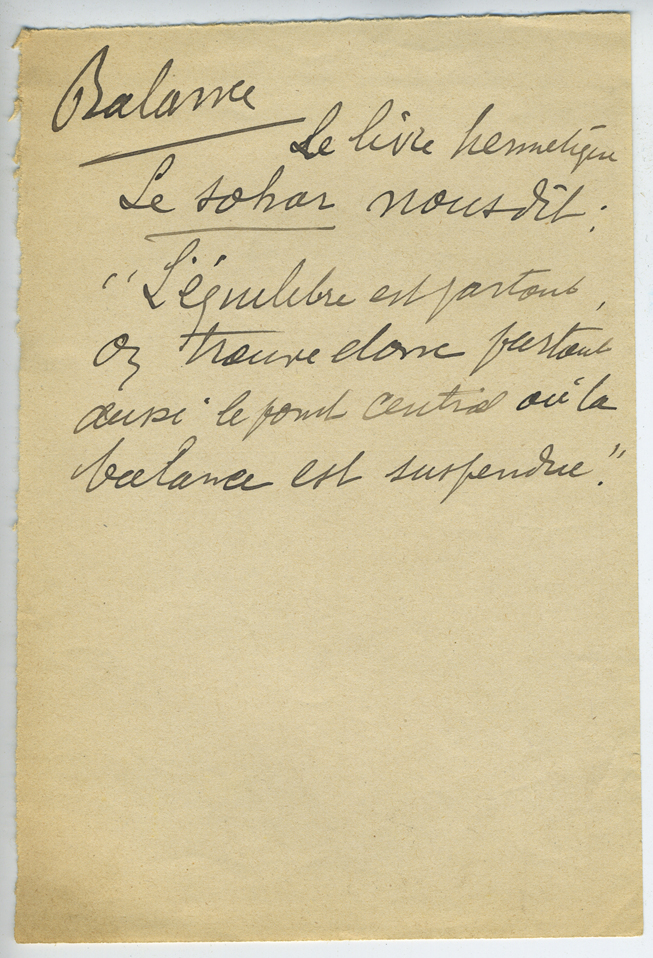 Balance
Le livre hermetique
Le sohar nous dit :
“L'équilibre est partout,
on trouve donc partout
aussi le point central où la
balance est suspendue.”